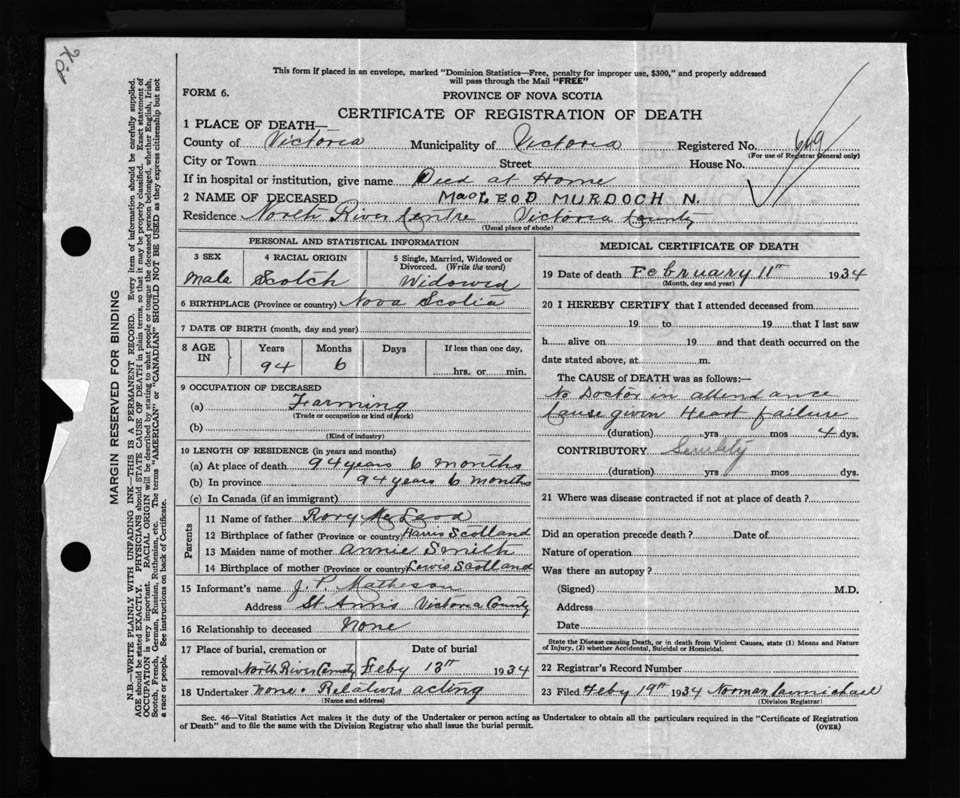 This form if placed in an envelope, marked "Dominion Statistics—Free, penalty for improper use, $300," and properly addressed
will pass through the Mail "FREE"
FORM 6.
PROVINCE OF NOVA SCOTIA
CERTIFICATE OF REGISTRATION OF DEATH
1 PLACE OF DEATH—
County of Victoria Municipality of Victoria Registered No. 649
(For use of Registrar General only)
City or Town Street House No.
If in hospital or institution, give name Died at Home
2 NAME OF DECEASED MacLEOD MURDOCH N.
Residence North River Centre Victoria County
(Usual place of abode)
PERSONAL AND STATISTICAL INFORMATION
3 SEX 4 RACIAL ORIGIN 5 Single, Married, Widowed or
Divorced. (Write the word)
Male Scotch Widowed
6 BIRTHPLACE (Province or country) Nova Scotia
7 DATE OF BIRTH (month, day and year)
8 AGE IN Years Months Days If less than one day,
94 6 hrs. or min.
9 OCCUPATION OF DECEASED
(a) Farming
(Trade or occupation or kind of work)
(b)
(Kind of industry)
10 LENGTH OF RESIDENCE (in years and months)
(a) At place of death 94 years 6 months
(b) In province 94 years 6 months
(c) In Canada (if an immigrant)
Parents
11 Name of father Rory McLeod
12 Birthplace of father (Province or country) Harris Scotland
13 Maiden name of mother Annie Smith
14 Birthplace of mother (Province or country) Lewis Scotland
15 Informant's name J. P. Matheson
Address St Anns Victoria County
16 Relationship to deceased None
17 Place of burial, cremation or Date of burial
removal North River County Feby 13th 1934
18 Undertaker None. Relatives acting
(Name and address)
MEDICAL CERTIFICATE OF DEATH
19 Date of death February 11th 1934
(Month, day and year)
20 I HEREBY CERTIFY that I attended deceased from
19 to 19 that I last saw
h alive on 19 and that death occurred on the
date stated above, at m.
The CAUSE of DEATH was as follows:—
No Doctor in attendance
Cause given Heart failure
(duration) yrs mos 4 dys.
CONTRIBUTORY Senility
(duration) yrs mos dys.
21 Where was disease contracted if not at place of death?
Did an operation precede death? Date of
Nature of operation
Was there an autopsy?
(Signed) M.D.
Address
Date
State the Disease causing Death, or in death from Violent Causes, state (1) Means and Nature
of Injury, (2) whether Accidental, Suicidal or Homicidal.
22 Registrar's Record Number
23 Filed Feby 19th 1934 Norman Carmichael
(Division Registrar)
Sec. 46—Vital Statistics Act makes it the duty of the Undertaker or person acting as Undertaker to obtain all the particulars required in the "Certificate of Registration
of Death" and to file the same with the Division Registrar who shall issue the burial permit.
(OVER)
MARGIN RESERVED FOR BINDING
N.B.—WRITE PLAINLY WITH UNFADING INK—THIS IS A PERMANENT RECORD. Every item of information should be carefully supplied.
AGE should be stated EXACTLY. PHYSICIANS should STATE CAUSE OF DEATH in plain terms, so that it may be properly classified. Exact statement of
OCCUPATION is very important. RACIAL ORIGIN will be described by stating to what people or tongue the deceased person belonged, whether English, Irish,
Scotch, French, German, Russian, Ruthenian, etc. The terms "AMERICAN" or "CANADIAN" SHOULD NOT BE USED as they express citizenship but not
a race or people. See instructions on back of Certificate.